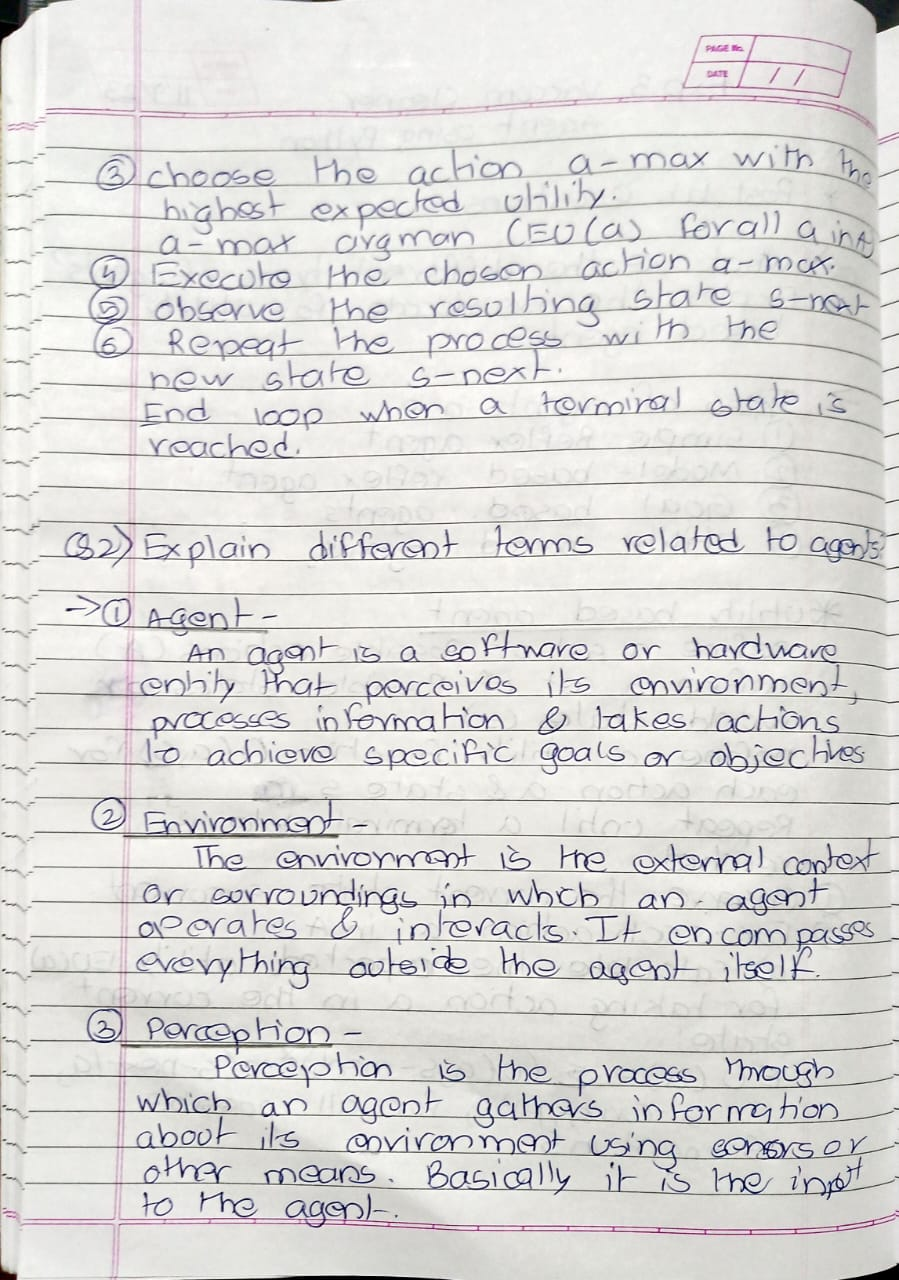 PAGE No.
DATE / /
③ choose the action a-max with the
highest expected utility.
a-max argman (EU(a) for all a in A)
④ Execute the chosen action a-max.
⑤ observe the resulting state s-next
⑥ Repeat the process with the
new state s-next.
End loop when a terminal state is
reached.
Q2) Explain different terms related to agents
→① Agent -
An agent is a software or hardware
entity that perceives its environment,
processes information & takes actions
to achieve specific goals or objectives
② Environment -
The environment is the external context
or surroundings in which an agent
operates & interacts. It encompasses
everything outside the agent itself.
③ Perception -
Perception is the process through
which an agent gathers information
about its environment using sensors or
other means. Basically it is the input
to the agent.